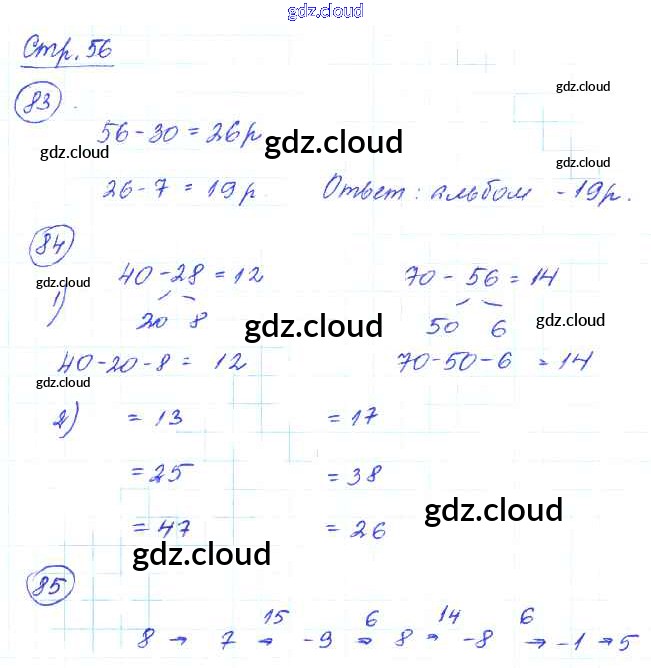 gdz.cloud
Стр. 56
gdz.cloud
83.
56-30 = 26р gdz.cloud
gdz.cloud
gdz.cloud
26-7 = 19р. Ответ: альбом - 19р.
84
40-28 = 12 70 - 56 = 14
gdz.cloud
1)
20 8 gdz.cloud 50 6 gdz.cloud
40-20-8 = 12 70-50-6 = 14
gdz.cloud
2) = 13 = 17
= 25 = 38
gdz.cloud
= 47 = 26
gdz.cloud
85
15 6 14 6
8 → 7 → -9 → 8 → -8 → -1 → 5